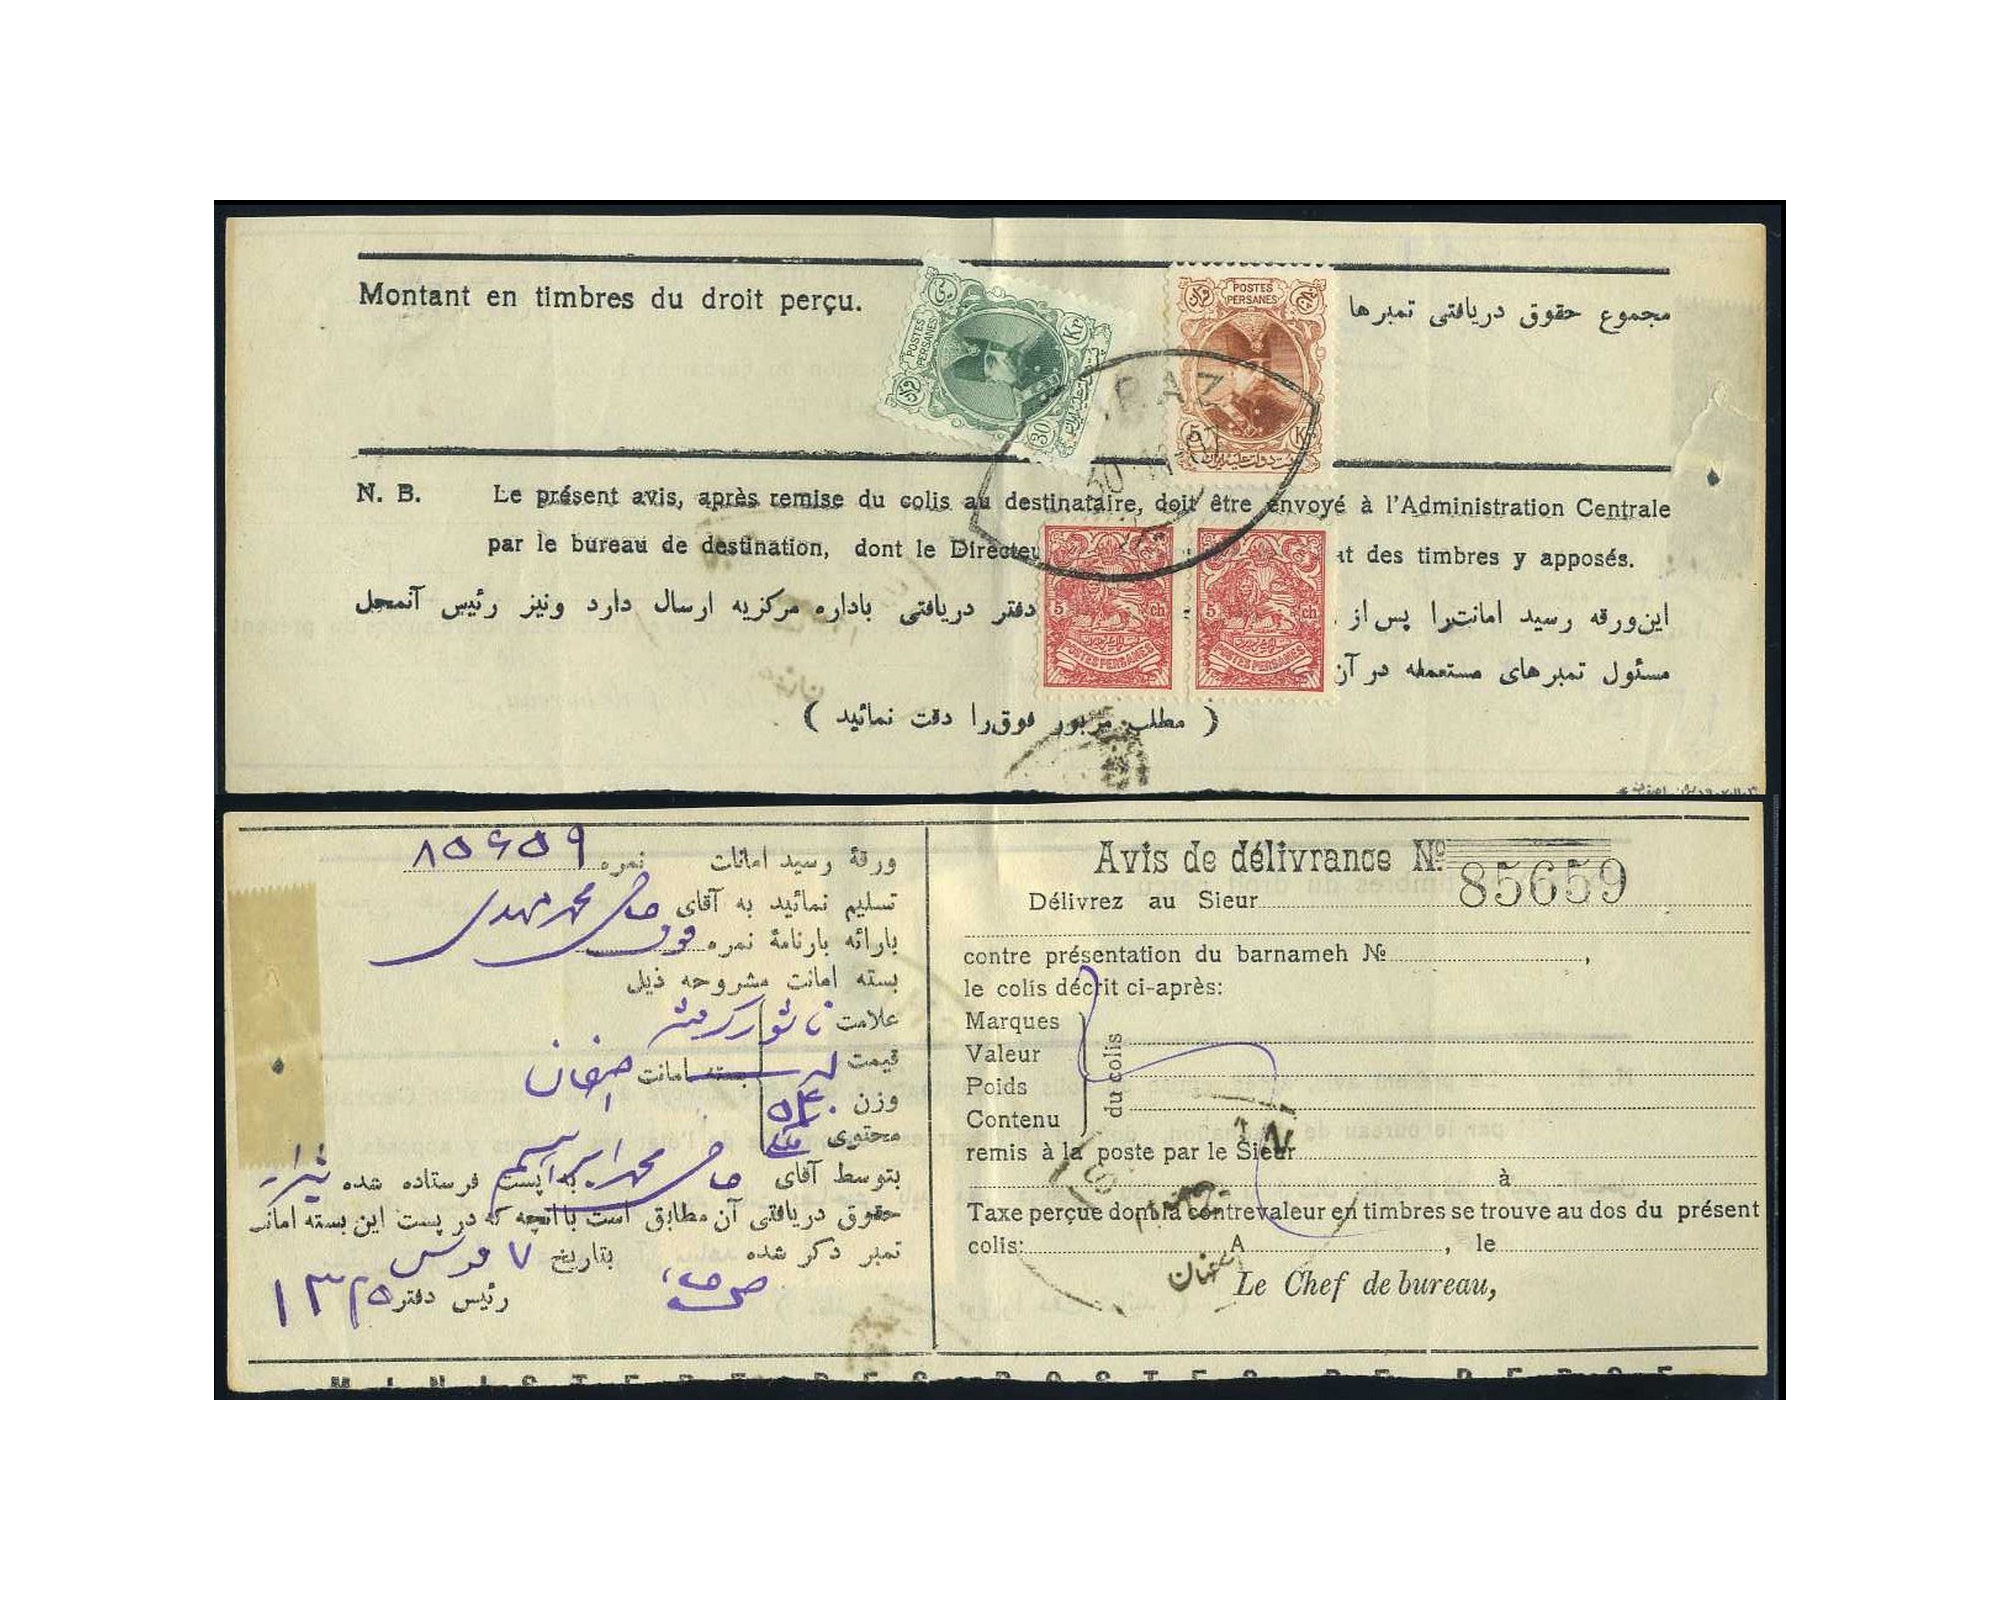 Montant en timbres du droit perçu.
مجموع حقوق دریافتی تمبرها
POSTES
PERSANES
30
Kr
POSTES
PERSANES
5
Kr
RAZ
N. B. Le présent avis, après remise du colis au destinataire, doit être envoyé à l'Administration Centrale
par le bureau de destination, dont le Directeu
at des timbres y apposés.
این ورقه رسید امانت را پس از
دفتر دریافتی باداره مرکزیه ارسال دارد ونیز رئیس آنمحل
مسئول تمبرهای مستعمله در آن
5 ch
POSTES PERSANES
5 ch
POSTES PERSANES
( مطلب مزبور فوق را دقت نمائید )
ورقهٔ رسید امانات نمره ۸۵۶۵۹
تسلیم نمائید به آقای حاجی محمد مهدی
بارائه بارنامهٔ نمره
بسته امانت مشروحه ذیل
علامت
قیمت
بسته امانت اصفهان
وزن
محتوی
بتوسط آقای حاجی محمد ابراهیم به پست فرستاده شده شیراز
حقوق دریافتی آن مطابق است باآنچه که در پست این بسته امانت
تمبر ذکر شده بتاریخ ۷ قوس
رئیس دفتر ۱۳۲۵
Avis de délivrance № 85659
Délivrez au Sieur
contre présentation du barnameh №,
le colis décrit ci-après:
Marques
Valeur
Poids
Contenu
du colis
remis à la poste par le Sieur
à
Taxe perçue dont la contrevaleur en timbres se trouve au dos du présent
colis: A, le
اصفهان
Le Chef de bureau,
MINISTERE DES POSTES DE PERSE